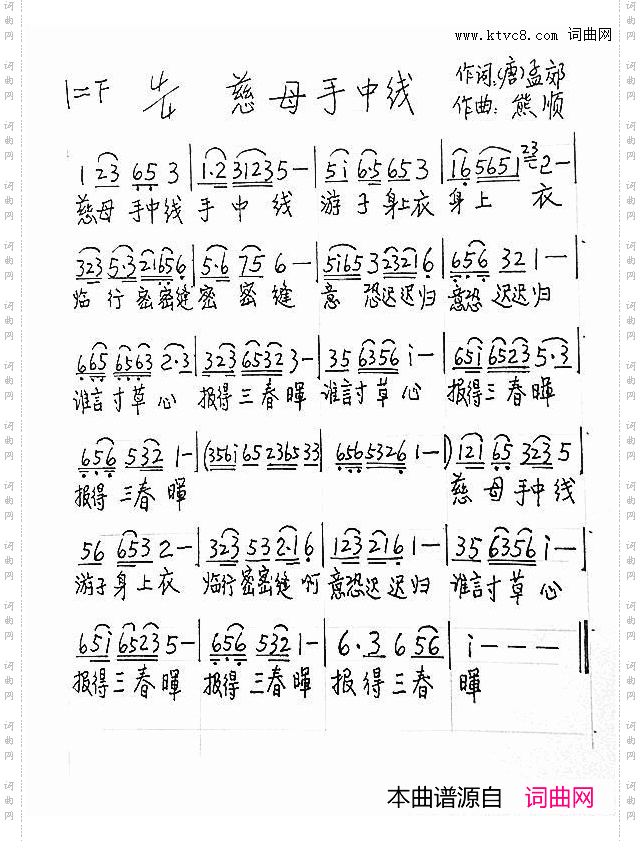 www.ktvc8.com 词曲网
1=F 4/4 慈母手中线 作词:(唐)孟郊
作曲:熊顺
1 23 65 3 | 1·2 3123 5 — | 5i 6·5 65 3 | i6 5651 23 2 — |
慈母 手中线 手 中 线 游 子 身上衣 身上 衣
323 5·3 21656 | 5·6 75 6 — | 5i65 3 2321 6 | 656 32 1 — |
临 行 密密缝密 密 缝 意 恐迟迟归 意恐 迟迟归
665 6563 2·3 | 323 6532 3 — | 35 6356 i — | 65i 6523 5·3 |
谁言寸草心 报得三春暉 谁言寸草 心 报得三春 暉
656 532 1 — | (356i 65 2365 33 | 656 5326 1 — |) 121 65 323 5 |
报得 三春 暉 慈 母 手中线
56 653 2 — | 323 53 2·1 6 | 123 216 1 — | 35 6356 i — |
游子 身 上衣 临行密密缝 啊 意恐迟 迟归 谁言寸草 心
65i 6523 5 — | 656 532 1 — | 6·3 6 56 | i — — — ‖
报得三春 暉 报得 三春暉 报 得三春 暉
本曲谱源自 词曲网
词曲网